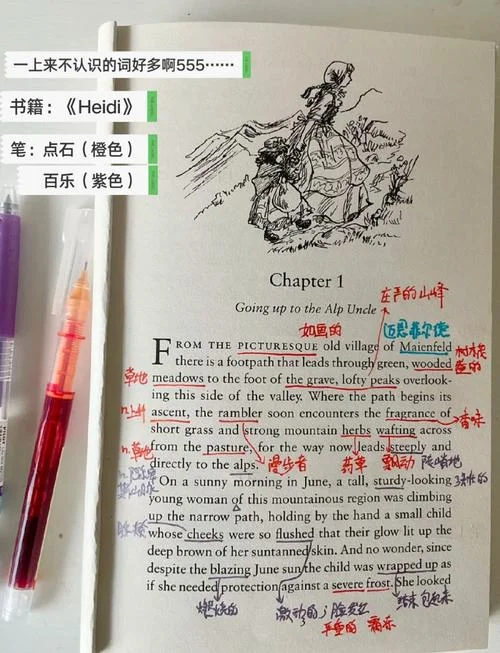 一上来不认识的词好多啊555……
书籍：《Heidi》
笔：点石（橙色）
百乐（紫色）
Chapter 1
庄严的山峰
Going up to the Alp Uncle
如画的
迈恩菲尔德
FROM THE PICTURESQUE old village of Maienfeld
there is a footpath that leads through green, wooded
草地
meadows to the foot of the grave, lofty peaks overlook-
ing this side of the valley. Where the path begins its
n.上升
ascent, the rambler soon encounters the fragrance of
香味
short grass and strong mountain herbs wafting across
n.草地
from the pasture, for the way now leads steeply and
漫步者
药草
飘动
陡峭地
directly to the alps.
On a sunny morning in June, a tall, sturdy-looking
young woman of this mountainous region was climbing
up the narrow path, holding by the hand a small child
脸颊
whose cheeks were so flushed that their glow lit up the
deep brown of her suntanned skin. And no wonder, since
despite the blazing June sun the child was wrapped up as
if she needed protection against a severe frost. She looked
燃烧的
激动的；脸发红
严重的